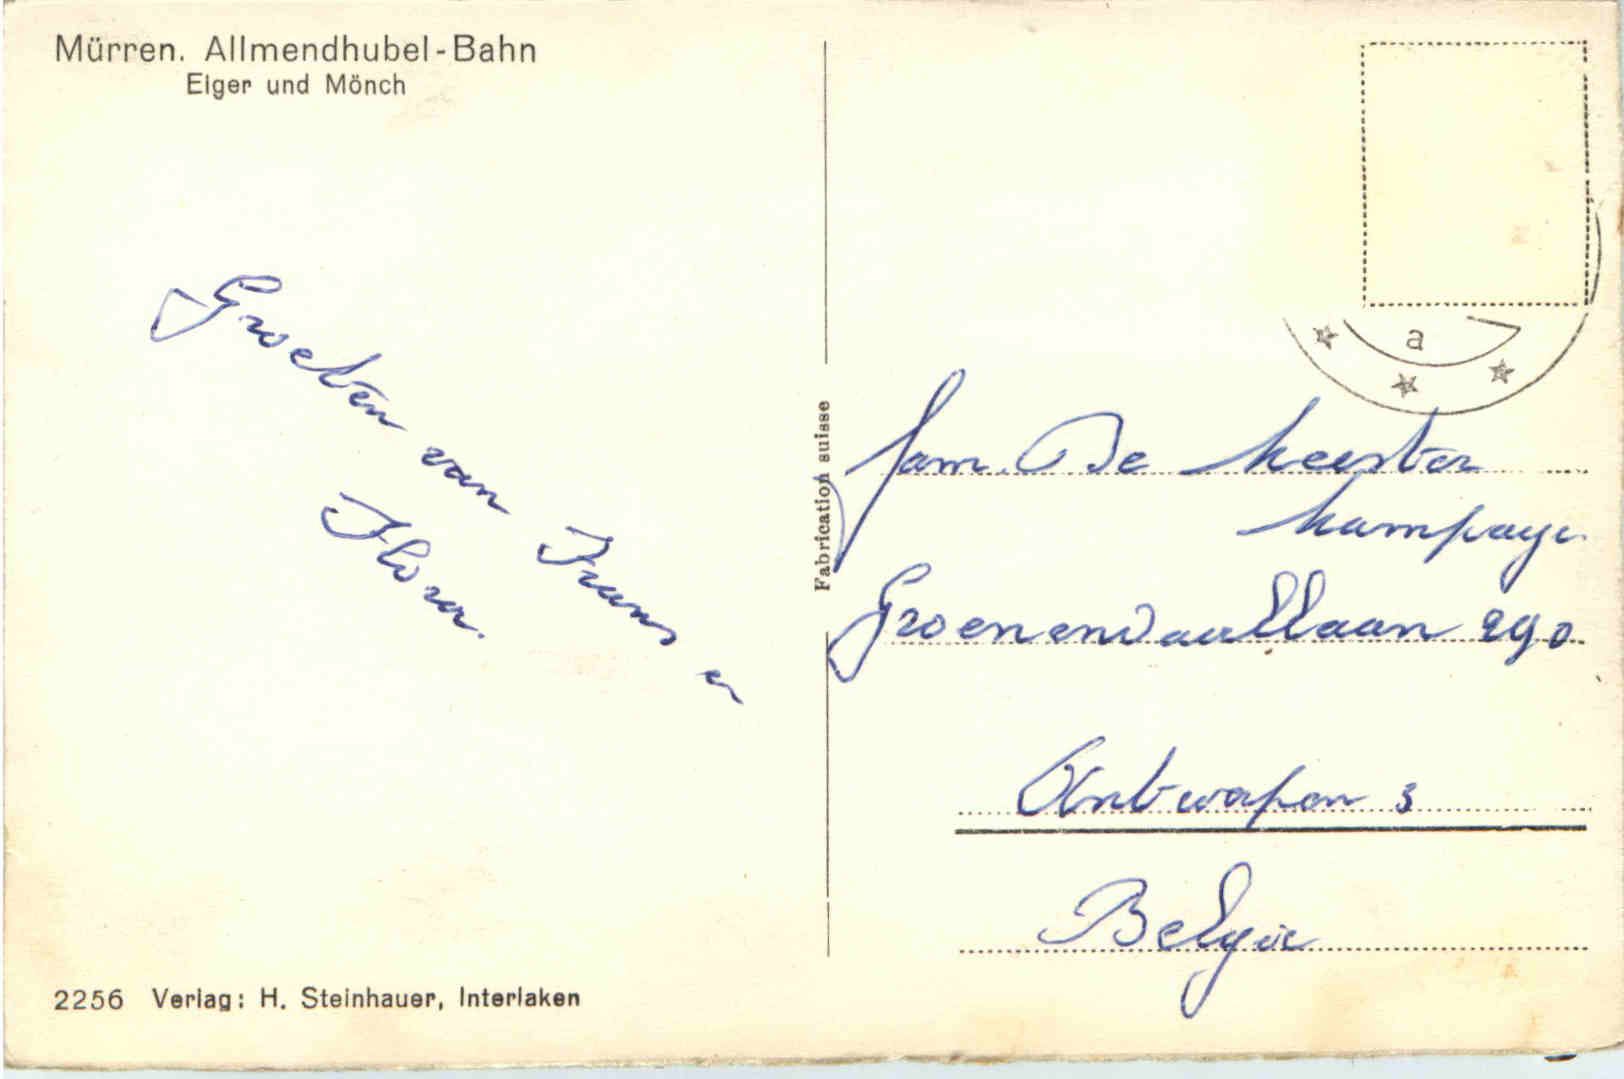 Mürren. Allmendhubel-Bahn
Eiger und Mönch
Groeten van Frans en
Flora.
2256 Verlag: H. Steinhauer, Interlaken
Fabrication suisse
a
fam. De Meester
Groenendaallaan 290
Antwerpen 3
België